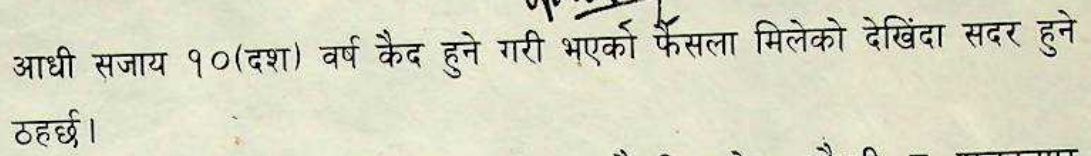 आधी सजाय १०(दश) वर्ष कैद हुने गरी भएको फैसला मिलेको देखिंदा सदर हुने
ठहर्छ।